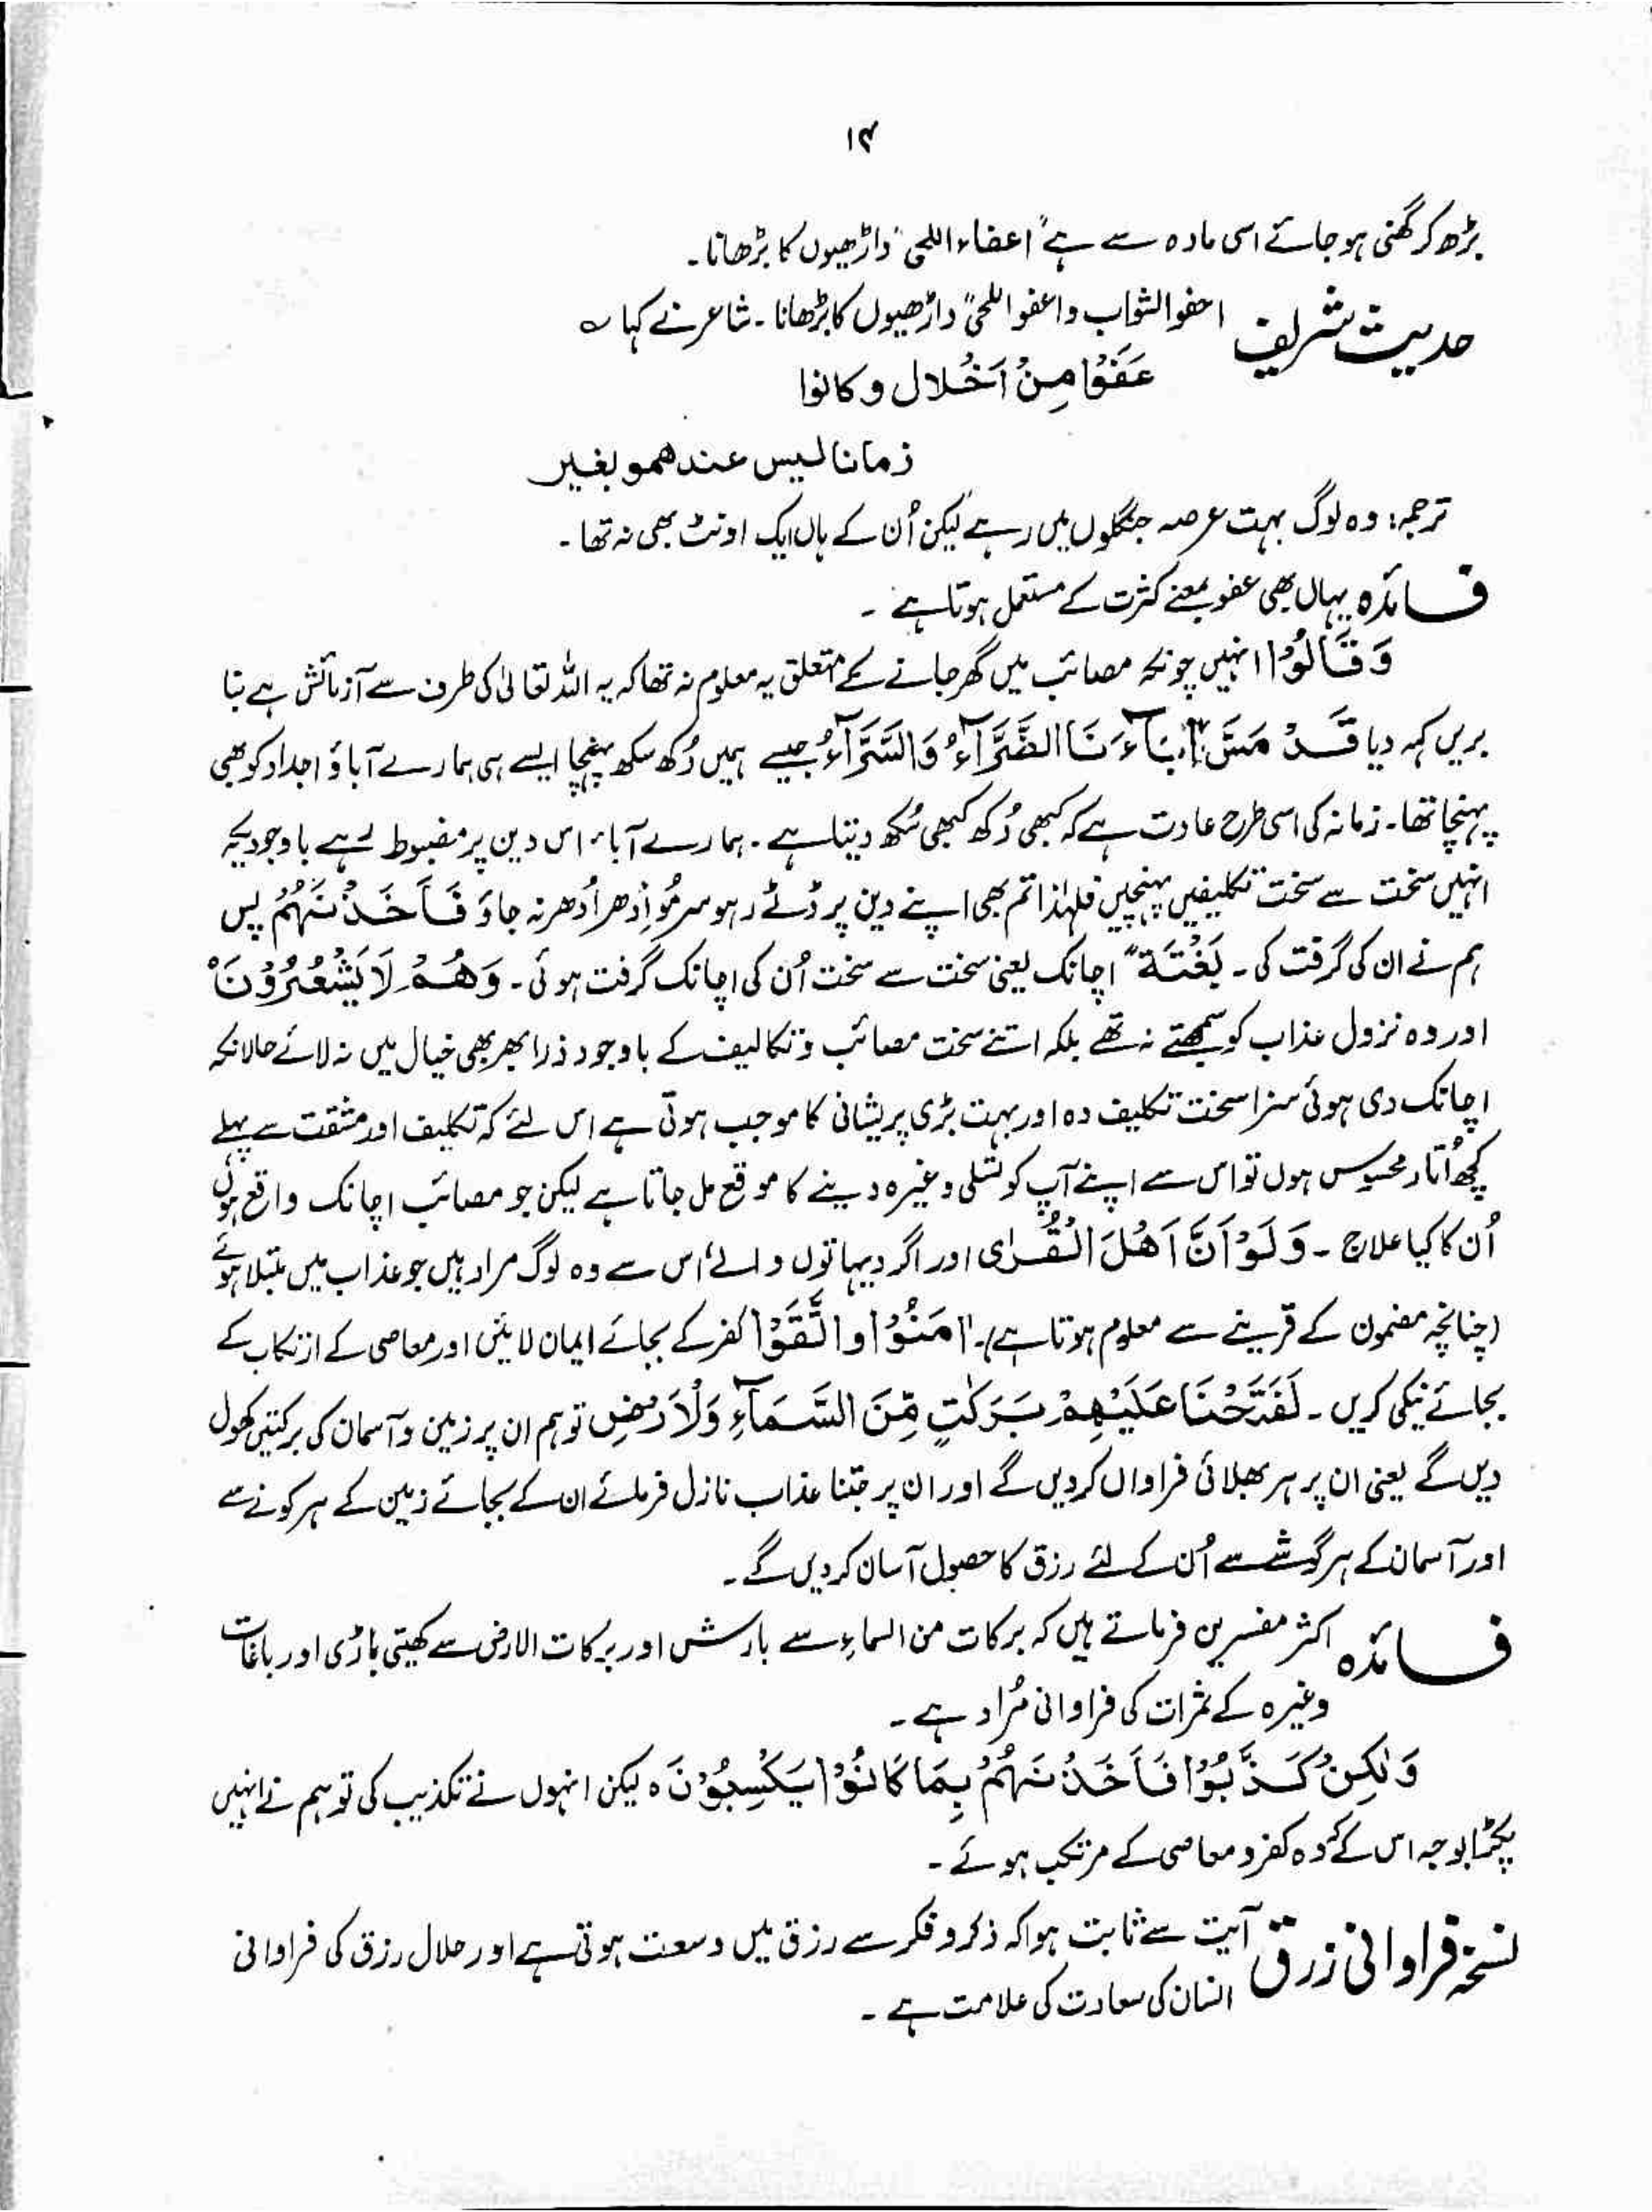 ۱۴
بڑھ کر گھنی ہو جائے اسی مادہ سے ہے "اعفاء اللحیٰ" داڑھیوں کا بڑھانا۔
حدیث شریف احفو الشواب واعفو اللحیٰ" داڑھیوں کا بڑھانا۔ شاعر نے کہا ؎
عَفَوْا مِنْ اَخْلال وکانوا
زمانا لیس عندھمو بغیر
ترجمہ: وہ لوگ بہت عرصہ جنگلوں میں رہے لیکن اُن کے ہاں ایک اونٹ بھی نہ تھا۔
فائدہ یہاں بھی عفو بمعنے کثرت کے مستعمل ہوتا ہے۔
وَقَالُوْا انہیں چونکہ مصائب میں گھر جانے کے متعلق یہ معلوم نہ تھا کہ یہ اللہ تعالیٰ کی طرف سے آزمائش ہے بنا
بریں کہہ دیا قَدْ مَسَّ اٰبَآءَنَا الضَّرَّآءُ وَالسَّرَّآءُ جیسے ہمیں دُکھ سکھ پہنچا ایسے ہی ہمارے آباؤ اجداد کو بھی
پہنچا تھا۔ زمانہ کی اسی طرح عادت ہے کہ کبھی دُکھ کبھی سُکھ دیتا ہے۔ ہمارے آباء اس دین پر مضبوط رہے باوجودیکہ
انہیں سخت سے سخت تکلیفیں پہنچیں فلہٰذا تم بھی اپنے دین پر ڈٹے رہو سرِمُو اِدھر اُدھر نہ جاؤ فَاَخَذْنٰہُمْ پس
ہم نے ان کی گرفت کی۔ بَغْتَةً اچانک یعنی سخت سے سخت اُن کی اچانک گرفت ہوئی۔ وَھُمْ لَا یَشْعُرُوْنَ
اور وہ نزول عذاب کو سمجھتے نہ تھے بلکہ اتنے سخت مصائب و تکالیف کے باوجود ذرا بھر بھی خیال میں نہ لائے حالانکہ
اچانک دی ہوئی سزا سخت تکلیف دہ اور بہت بڑی پریشانی کا موجب ہوتی ہے اس لئے کہ تکلیف اور مشقت سے پہلے
کچھ اُتار محسوس ہوں تو اس سے اپنے آپ کو تسلی وغیرہ دینے کا موقع مل جاتا ہے لیکن جو مصائب اچانک واقع ہوں
اُن کا کیا علاج۔ وَلَوْ اَنَّ اَھْلَ الْقُرٰی اور اگر دیہاتوں والے، اس سے وہ لوگ مراد ہیں جو عذاب میں مبتلا ہوئے
(چنانچہ مضمون کے قرینے سے معلوم ہوتا ہے)۔ اٰمَنُوْا واتَّقَوْا کفر کے بجائے ایمان لائیں اور معاصی کے ارتکاب کے
بجائے نیکی کریں۔ لَفَتَحْنَا عَلَیْھِمْ بَرَکٰتٍ مِّنَ السَّمَآءِ وَلْاَرْضِ تو ہم ان پر زمین و آسمان کی برکتیں کھول
دیں گے یعنی ان پر ہر بھلائی فراواں کر دیں گے اور ان پر جتنا عذاب نازل فرمائے ان کے بجائے زمین کے ہر کونے سے
اور آسمان کے ہر گوشے سے اُن کے لئے رزق کا حصول آسان کر دیں گے۔
فائدہ اکثر مفسرین فرماتے ہیں کہ برکات من السماء سے بارش اور برکات الارض سے کھیتی باڑی اور باغات
وغیرہ کے ثمرات کی فراوانی مُراد ہے۔
وَلٰکِنْ کَذَّبُوْا فَاَخَذْنٰہُمْ بِمَا کَانُوْا یَکْسِبُوْنَ ہ لیکن انہوں نے تکذیب کی تو ہم نے انہیں
پکڑا بوجہ اس کے کہ وہ کفر و معاصی کے مرتکب ہوئے۔
نسخۂ فراوانی رزق آیت سے ثابت ہوا کہ ذکر و فکر سے رزق میں وسعت ہوتی ہے اور حلال رزق کی فراوانی
انسان کی سعادت کی علامت ہے۔